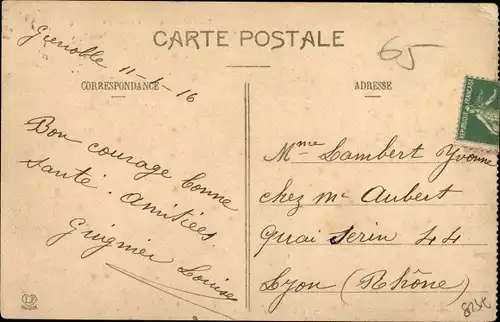 CARTE POSTALE
65
Grenoble 11-6-16
CORRESPONDANCE
Bon courage bonne
santé. Amitiées.
Guignier Louise
ADRESSE
REPUBLIQUE FRANÇAISE
Mme Lambert Yvonne
chez Mr Aubert
Quai Serin 44
Lyon (Rhône)